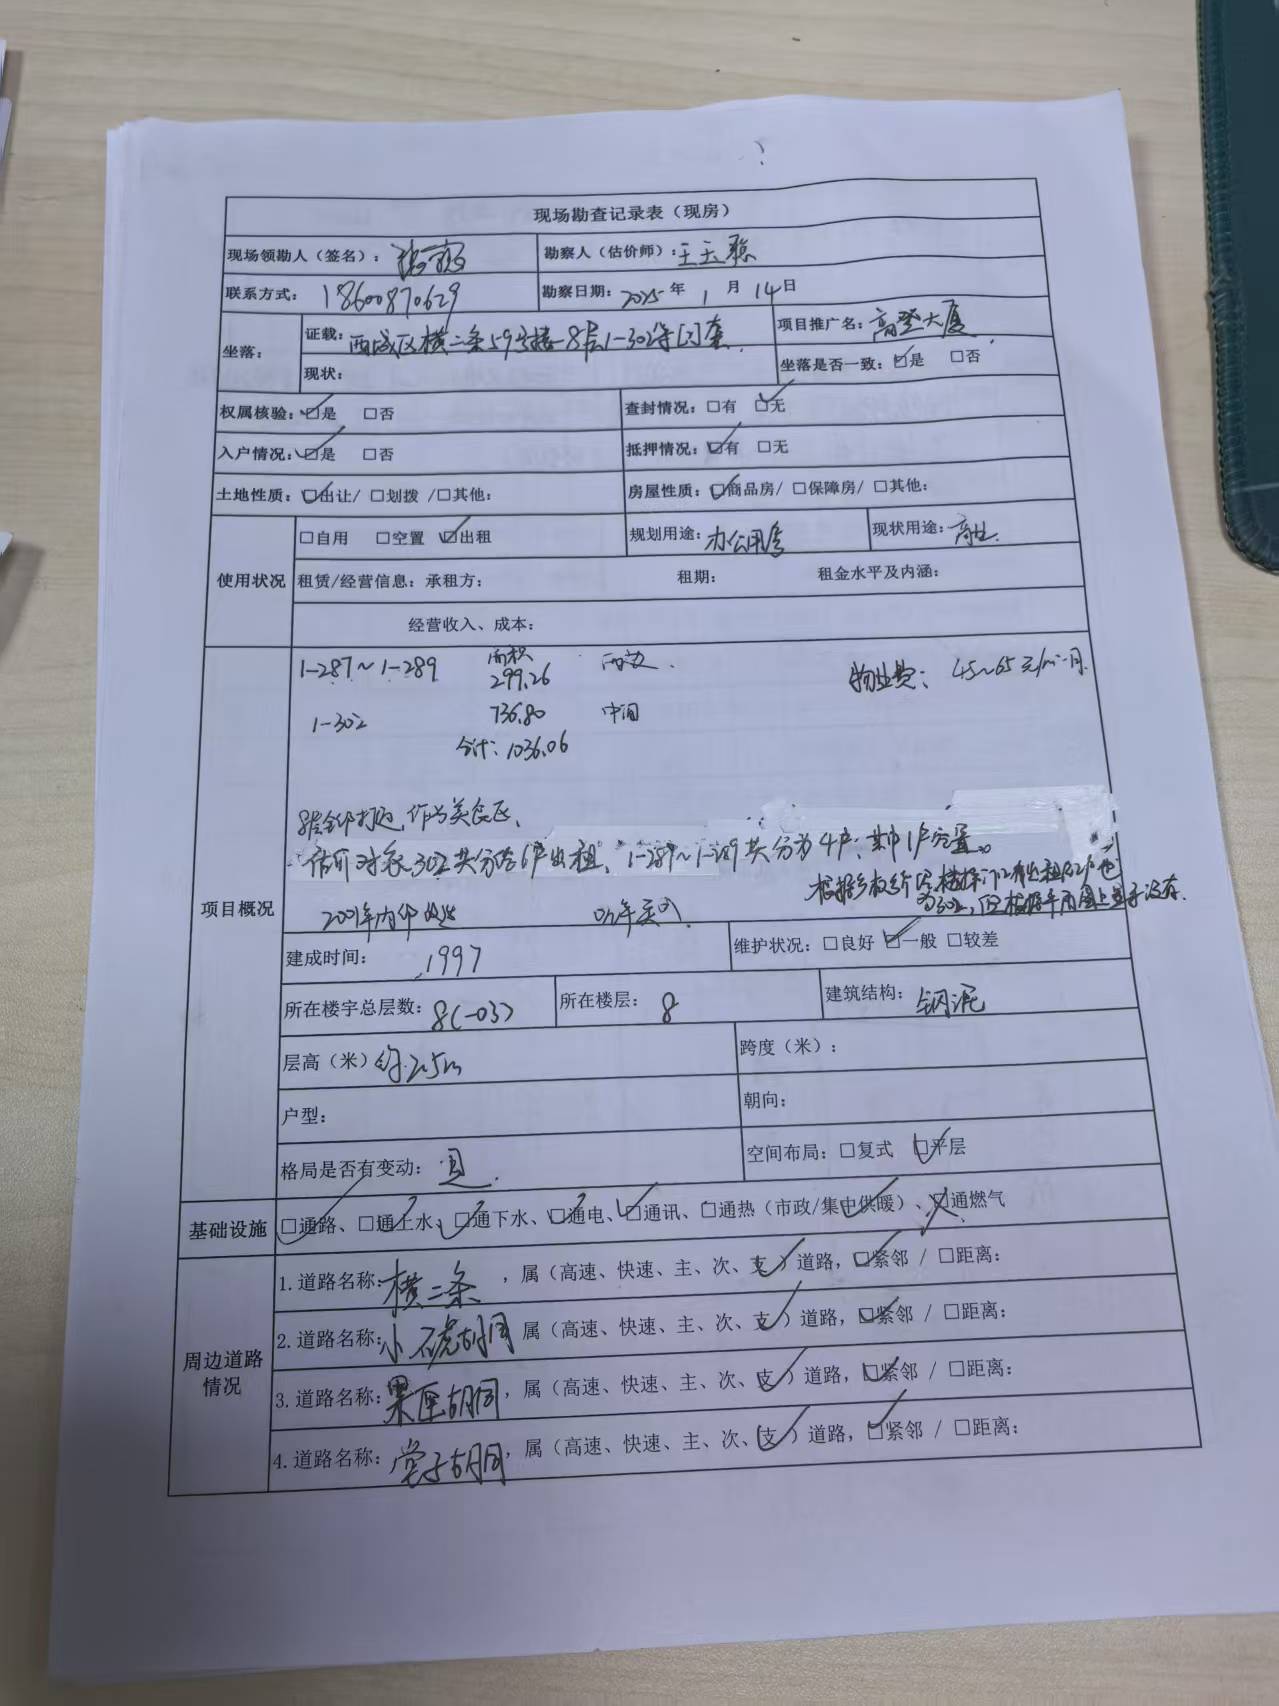 现场勘查记录表（现房）
现场领勘人（签名）： 勘察人（估价师）：王玉
联系方式：18600870629 勘察日期：2025年1月14日
坐落： 证载：西城区横二条59号楼8层1-302等[2]套 项目推广名：高登大厦
现状： 坐落是否一致：☑是 □否
权属核验：☑是 □否 查封情况：□有 ☑无
入户情况：☑是 □否 抵押情况：☑有 □无
土地性质：☑出让/ □划拨 /□其他： 房屋性质：☑商品房/ □保障房/ □其他：
使用状况 □自用 □空置 ☑出租 规划用途：办公用房 现状用途：商业
租赁/经营信息：承租方： 租期： 租金水平及内涵：
经营收入、成本：
项目概况
1-287～1-289 面积 299.26 物业费：45~65元/㎡·月
1-302 736.80 中间
合计：1036.06
现全部打通，作为美食区、
估价对象302共分为6户出租，1-287～1-289共分为4户，其中1户空置。
根据
302，但根据平面图上显示没有.
2001年内部
建成时间：1997 维护状况：□良好 ☑一般 □较差
所在楼宇总层数：8(-03) 所在楼层：8 建筑结构：钢混
层高（米）约2.5m 跨度（米）：
户型： 朝向：
格局是否有变动：是. 空间布局：□复式 ☑平层
基础设施 ☑通路、☑通上水、☑通下水、☑通电、☑通讯、☑通热（市政/集中供暖）、☒通燃气
周边道路情况
1.道路名称：横二条，属（高速、快速、主、次、支✓）道路，☑紧邻 / □距离：
2.道路名称：小石虎胡同 属（高速、快速、主、次、支✓）道路，☑紧邻 / □距离：
3.道路名称：果匣胡同，属（高速、快速、主、次、支✓）道路，☑紧邻 / □距离：
4.道路名称：堂子胡同，属（高速、快速、主、次、支✓）道路，☑紧邻 / □距离：